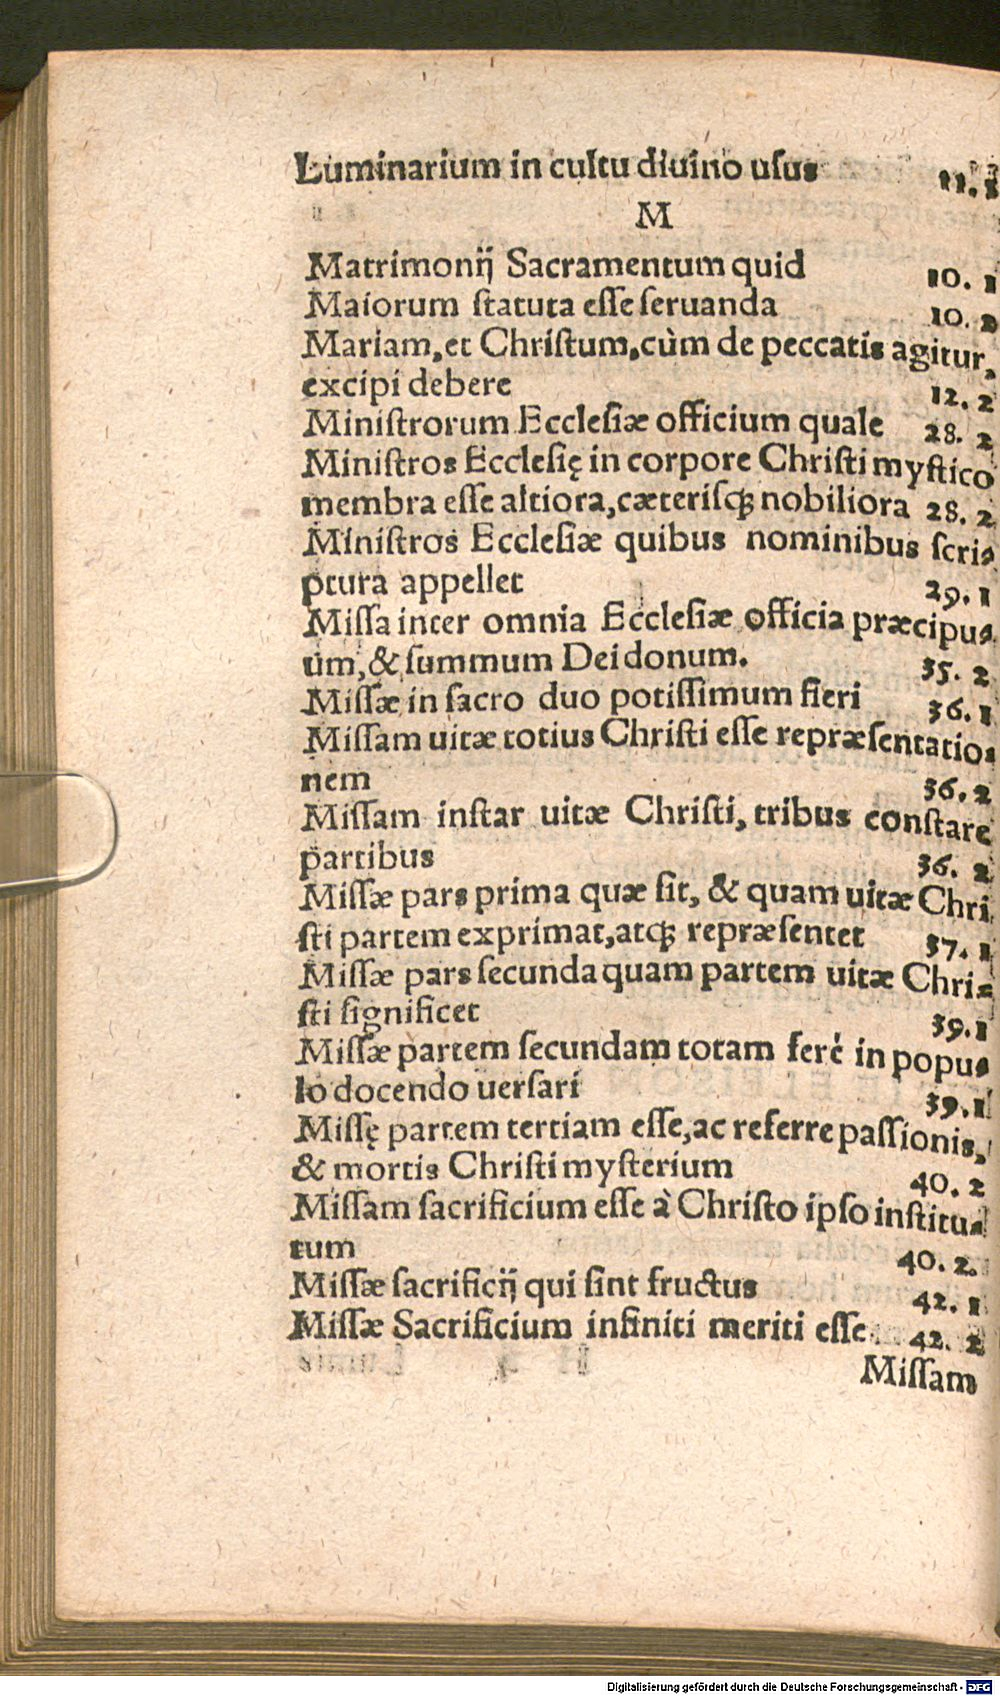 Luminarium in cultu diuino uſus 11. 1
M
Matrimonij Sacramentum quid 10. 1
Maiorum ſtatuta eſſe ſeruanda 10. 2
Mariam, et Chriſtum, cùm de peccatis agitur,
excipi debere 12. 2
Miniſtrorum Eccleſiæ officium quale 28. 2
Miniſtros Eccleſię in corpore Chriſti myſtico
membra eſſe altiora, cæteriſq; nobiliora 28. 2
Miniſtros Eccleſiæ quibus nominibus ſcri⸗
ptura appellet 29. 1
Miſſa inter omnia Eccleſiæ officia præcipu⸗
um, & ſummum Dei donum. 35. 2
Miſſæ in ſacro duo potiſſimum fieri 36. 1
Miſſam uitæ totius Chriſti eſſe repræſentatio⸗
nem 36. 2
Miſſam inſtar uitæ Chriſti, tribus conſtare
partibus 36. 2
Miſſæ pars prima quæ ſit, & quam uitæ Chri
ſti partem exprimat, atq; repræſentet 37. 1
Miſſæ pars ſecunda quam partem uitæ Chri⸗
ſti ſignificet 39. 1
Miſſæ partem ſecundam totam ferè in popu⸗
lo docendo uerſari 39. 1
Miſſę partem tertiam eſſe, ac referre paſſionis,
& mortis Chriſti myſterium 40. 2
Miſſam ſacrificium eſſe à Chriſto ipſo inſtitu⸗
tum 40. 2.
Miſſæ ſacrificij qui ſint fructus 42. 1
Miſſæ Sacrificium infiniti meriti eſſe 42. 2
Miſſam
Digitalisierung gefördert durch die Deutsche Forschungsgemeinschaft - DFG